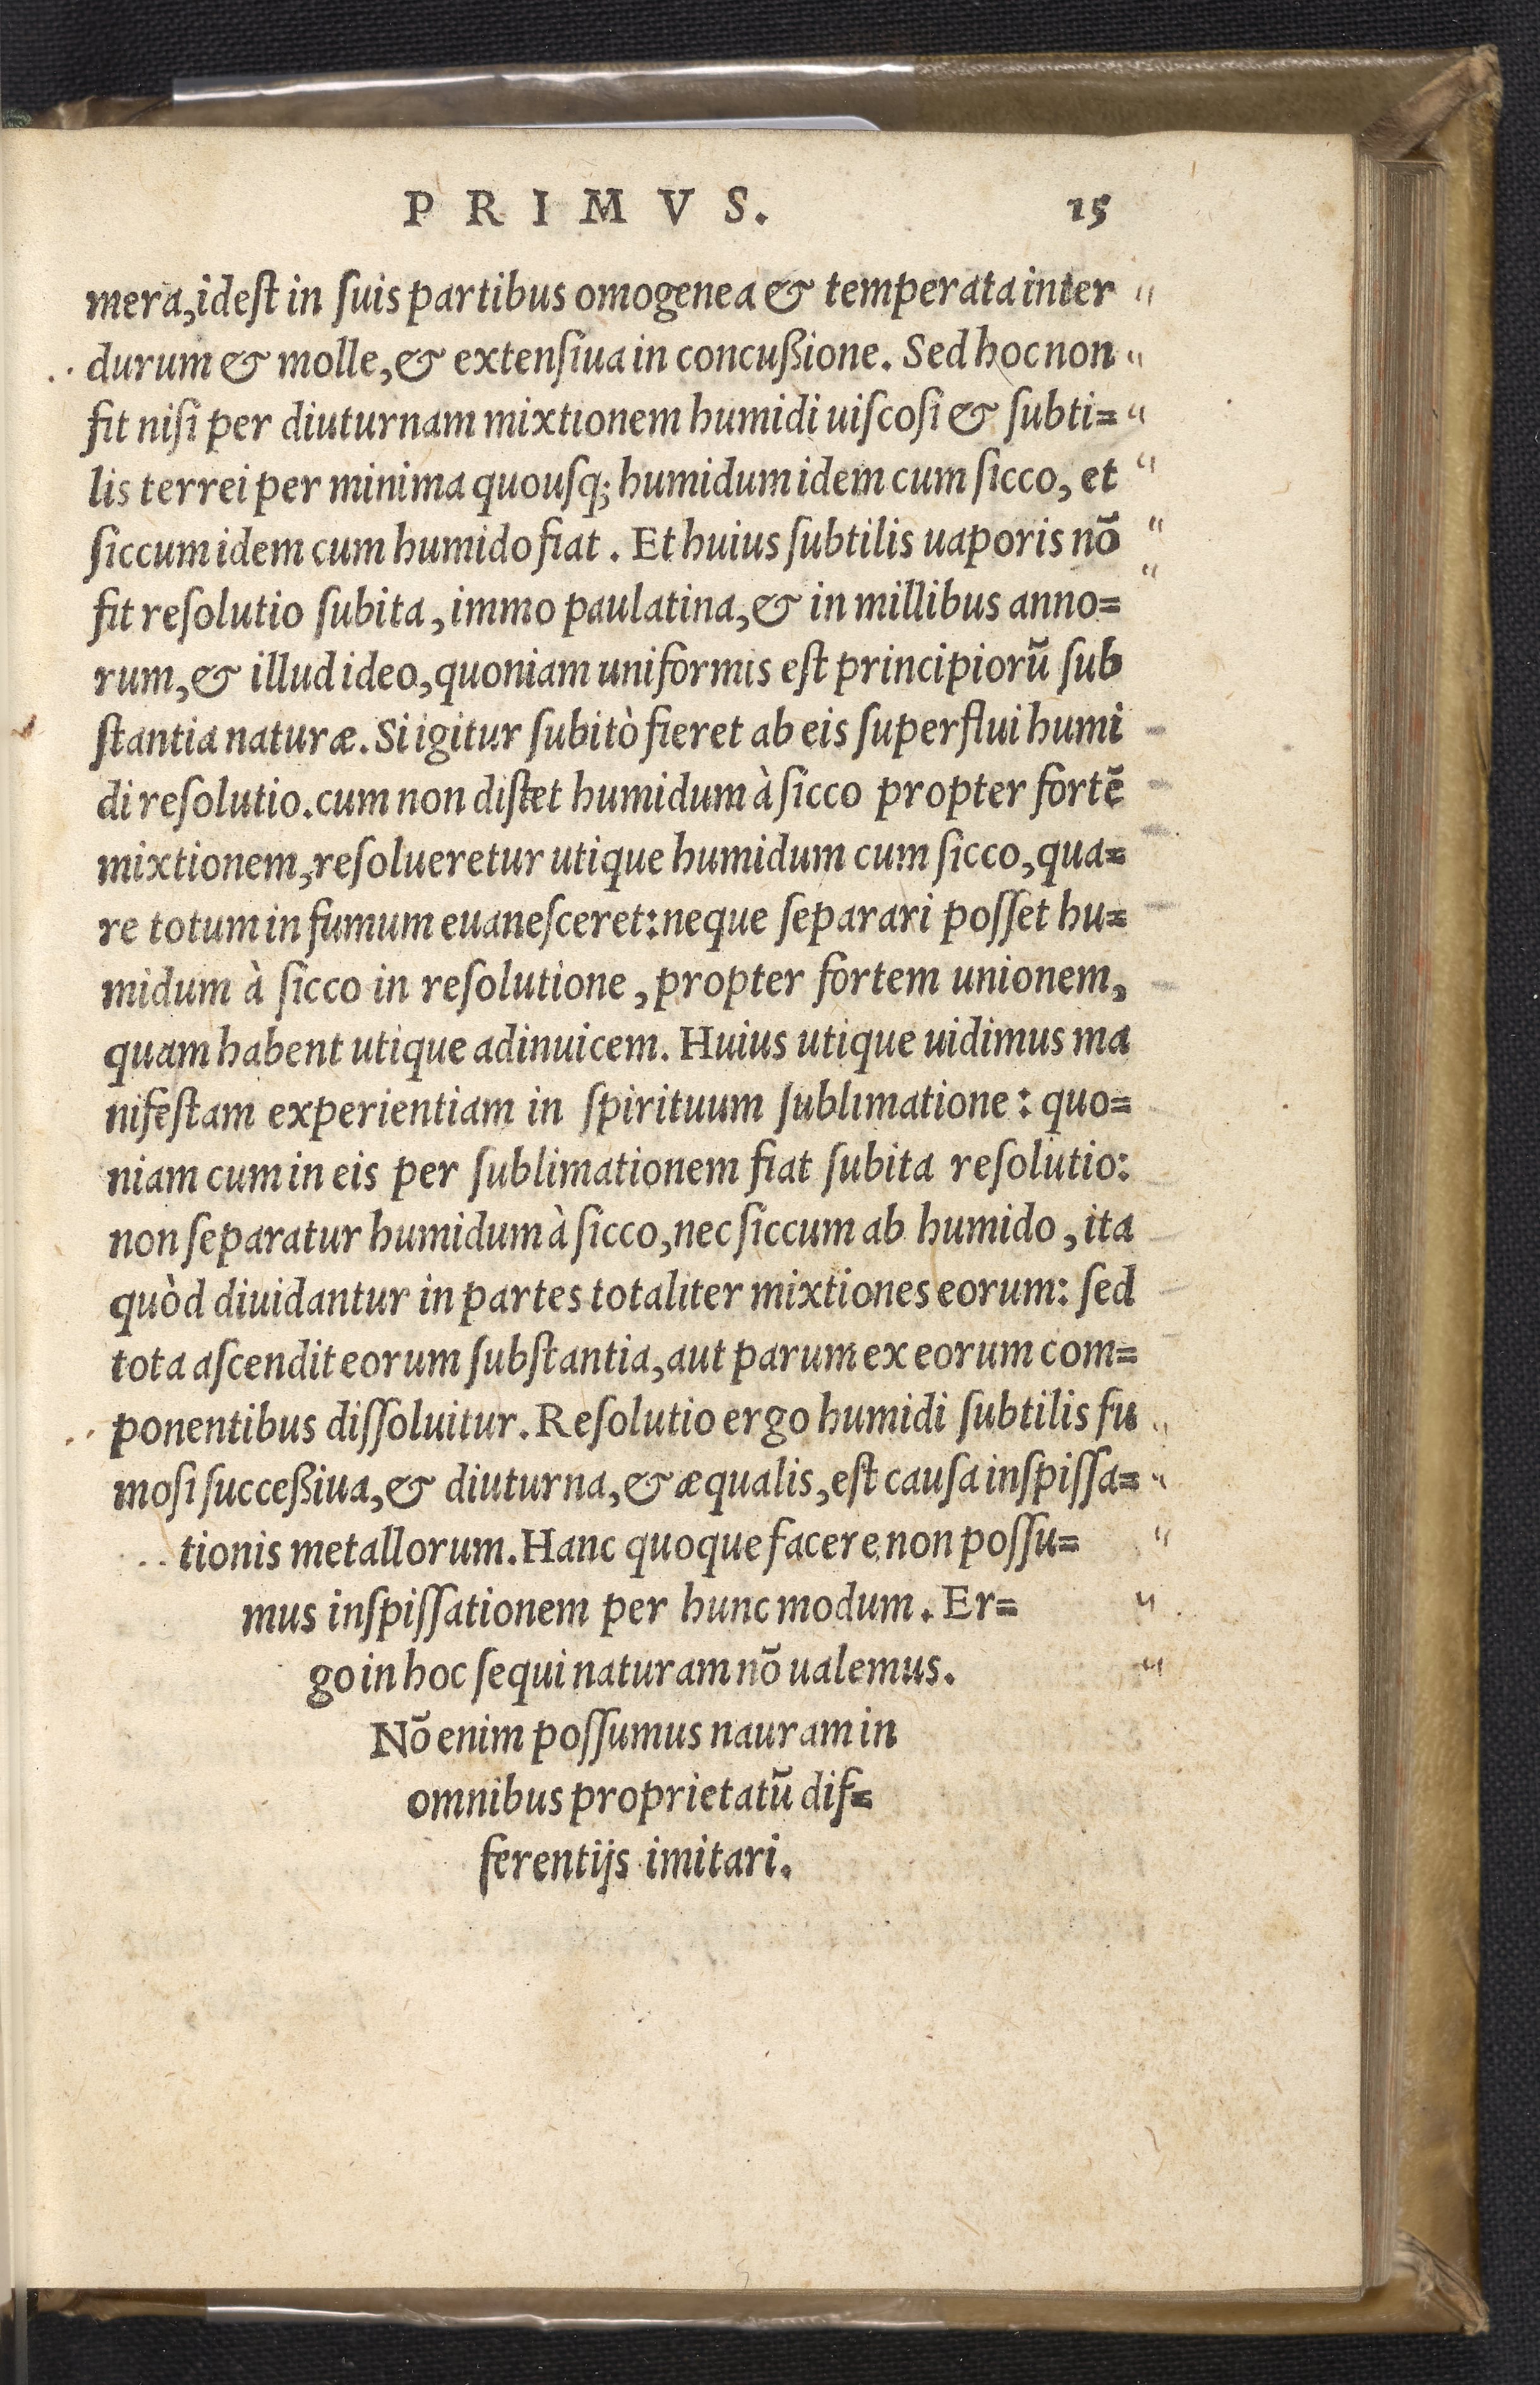 PRIMVS. 15
mera, idest in ſuis partibus omogenea & temperata inter
durum & molle, & extenſiua in concußione. Sed hoc non
fit niſi per diuturnam mixtionem humidi uiſcoſi & ſubti=
lis terrei per minima quouſq; humidum idem cum ſicco, et
ſiccum idem cum humido fiat. Et huius ſubtilis uaporis nō
fit reſolutio ſubita, immo paulatina, & in millibus anno=
rum, & illud ideo, quoniam uniformis eſt principiorū ſub
ſtantia naturæ. Si igitur ſubitò fieret ab eis ſuperflui humi
di reſolutio. cum non diſtet humidum à ſicco propter fortē
mixtionem, reſolueretur utique humidum cum ſicco, qua=
re totum in fumum euaneſceret: neque ſeparari poſſet hu=
midum à ſicco in reſolutione, propter fortem unionem,
quam habent utique adinuicem. Huius utique uidimus ma
nifeſtam experientiam in ſpirituum ſublimatione: quo=
niam cum in eis per ſublimationem fiat ſubita reſolutio:
non ſeparatur humidum à ſicco, nec ſiccum ab humido, ita
quòd diuidantur in partes totaliter mixtiones eorum: ſed
tota aſcendit eorum ſubſtantia, aut parum ex eorum com=
ponentibus diſſoluitur. Reſolutio ergo humidi ſubtilis fu
moſi ſucceßiua, & diuturna, & æqualis, eſt cauſa inſpiſſa=
tionis metallorum. Hanc quoque facere non poſſu=
mus inſpiſſationem per hunc modum. Er=
go in hoc ſequi naturam nō ualemus.
Nō enim poſſumus nauram in
omnibus proprietatū dif=
ferentijs imitari.